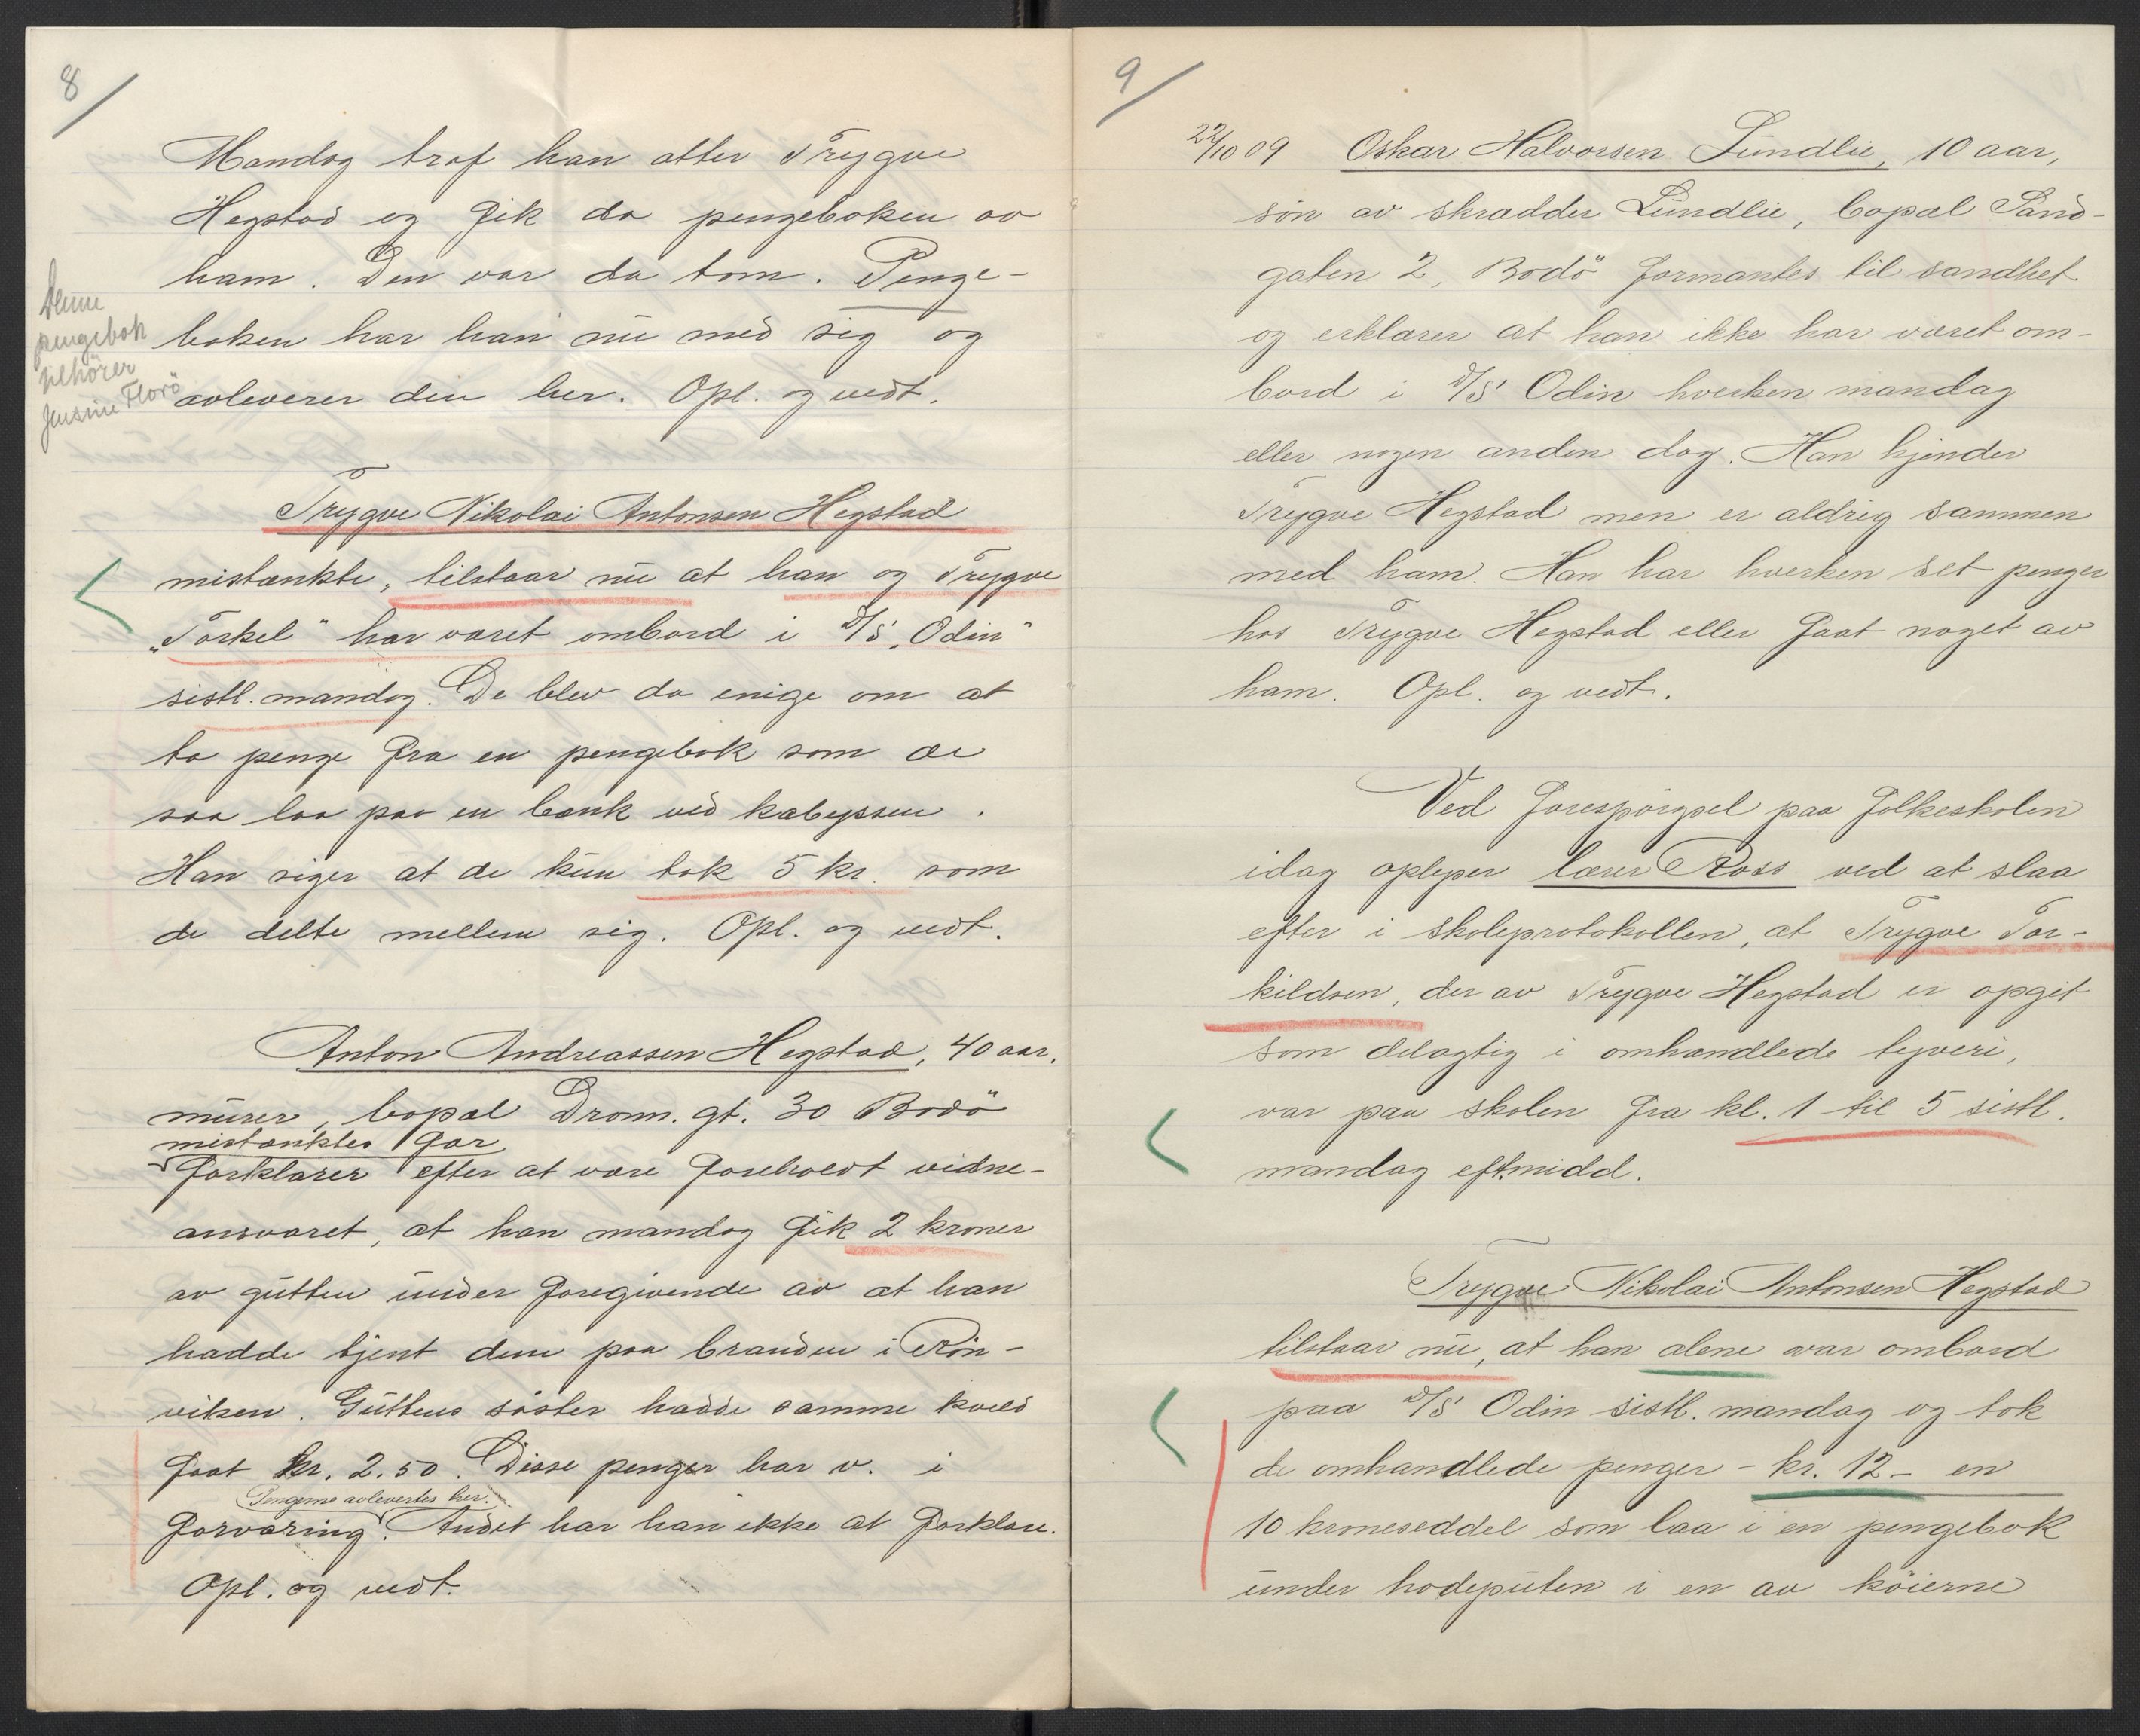 8/
Mandag traf han atter Trygve
Hegstad og fik da pengeboken av
ham. Den var da tom. Penge-
boken har han nu med sig og
avleverer den her. Opl. og vedt.
Denne
pengebok
tilhörer
Flovö
Trygve Nikolai Antonsen Hegstad
mistænkte, tilstaar nu at han og Trygve
„Torkel" har været ombord i D/S „Odin"
sistl. mandag. De blev da enige om at
ta penge fra en pengebok som de
saa laa paa en bænk ved kabyssen.
Han siger at de kun tok 5 kr. som
de delte mellem sig. Opl. og vedt.
Anton Andreassen Hegstad, 40 aar,
murer, bopæl Dronn. gt. 30 Bodö
mistænktes far
forklarer efter at være foreholdt vidne-
ansvaret, at han mandag fik 2 kroner
av gutten under foregivende av at han
hadde tjent dem paa branden i Rön-
viken. Guttens söster hadde samme kveld
faat kr. 2.50. Disse penger har v. i
Pengene avlevertes her.
forvaring. Andet har han ikke at forklare.
Opl. og vedt.
9/
22/10 09 Oskar Halvorsen Lundlie, 10 aar,
sön av skrædder Lundlie, bopæl Sand-
gaten 2, Bodö formantes til sandhet
og erklærer at han ikke har været om-
bord i D/S Odin hverken mandag
eller nogen anden dag. Han kjender
Trygve Hegstad men er aldrig sammen
med ham. Han har hverken set penger
hos Trygve Hegstad eller faat noget av
ham. Opl. og vedt.
Ved forespörgsel paa folkeskolen
idag oplyser lærer Ross ved at slaa
efter i skoleprotokollen, at Trygve Tor-
kildsen, der av Trygve Hegstad er opgit
som delagtig i omhandlede tyveri,
var paa skolen fra kl. 1 til 5 sistl.
mandag eft.midd.
Trygve Nikolai Antonsen Hegstad
tilstaar nu, at han alene var ombord
paa D/S Odin sistl. mandag og tok
de omhandlede penger - kr. 12 - en
10 kroneseddel som laa i en pengebok
under hodeputen i en av köierne